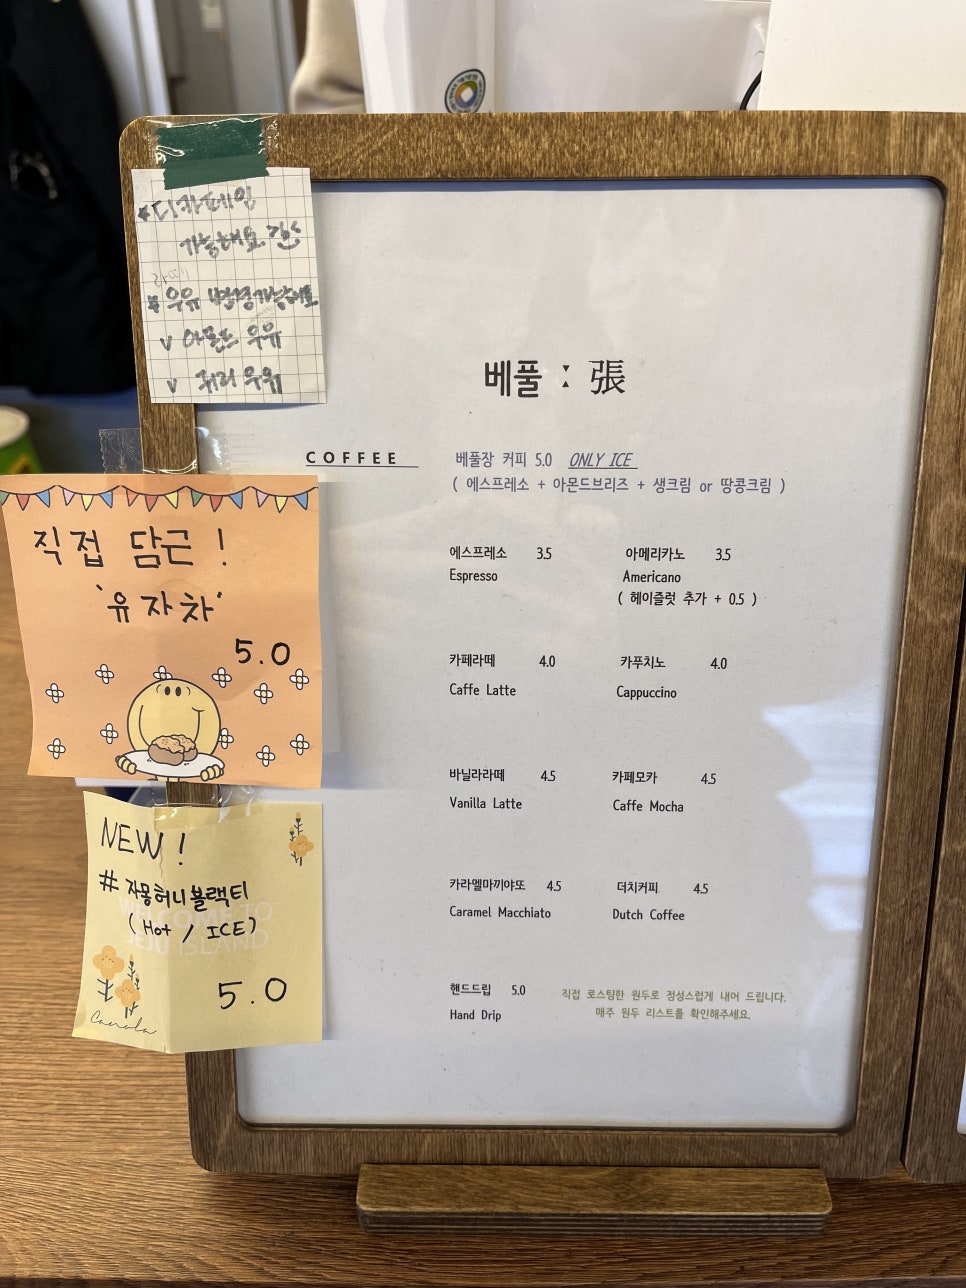 *디카페인
가능해요
라떼
# 우유 변경가능해요
v 아몬드 우유
v 귀리 우유
직접 담근 !
'유자차'
5.0
NEW !
# 자몽허니블랙티
( Hot / ICE )
WELCOME TO
JEJU ISLAND
5.0
Canola
베풀 : 張
COFFEE
베풀장 커피 5.0 ONLY ICE
( 에스프레소 + 아몬드브리즈 + 생크림 or 땅콩크림 )
에스프레소 3.5 아메리카노 3.5
Espresso Americano
( 헤이즐럿 추가 + 0.5 )
카페라떼 4.0 카푸치노 4.0
Caffe Latte Cappuccino
바닐라라떼 4.5 카페모카 4.5
Vanilla Latte Caffe Mocha
카라멜마끼야또 4.5 더치커피 4.5
Caramel Macchiato Dutch Coffee
핸드드립 5.0 직접 로스팅한 원두로 정성스럽게 내어 드립니다.
Hand Drip 매주 원두 리스트를 확인해주세요.